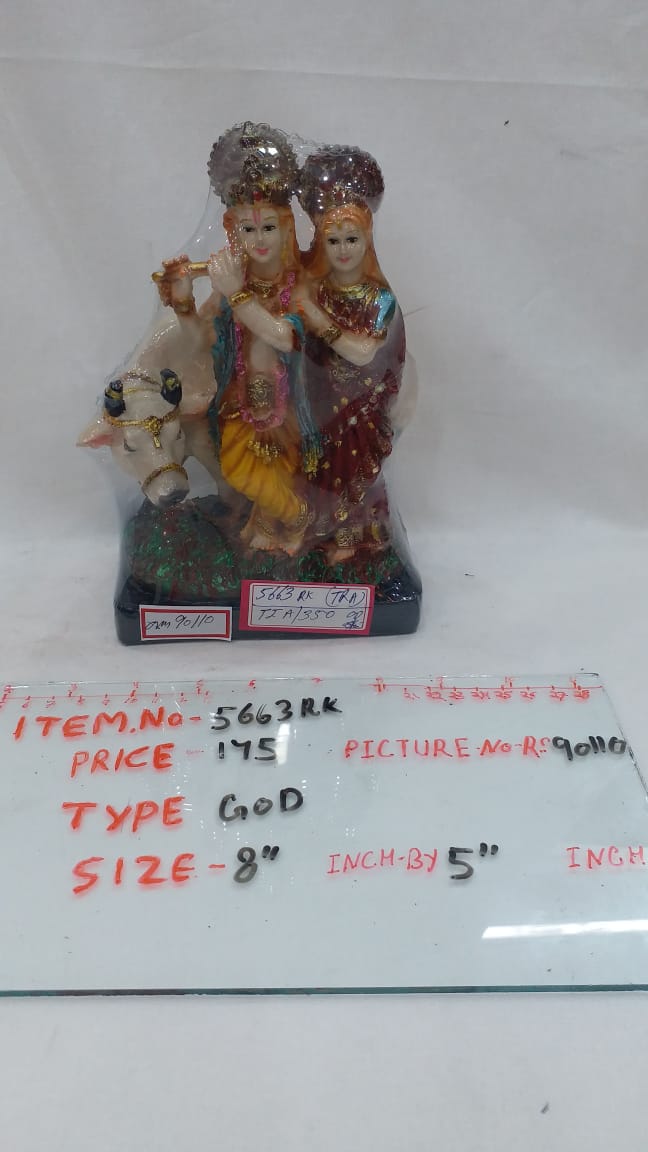 5663 RK (TRA)
TIA/350 00
90110
ITEM.No - 5663RK
PRICE - 175 PICTURE-No-RS 90110
TYPE GOD
SIZE - 8" INCH-BY 5" INCH